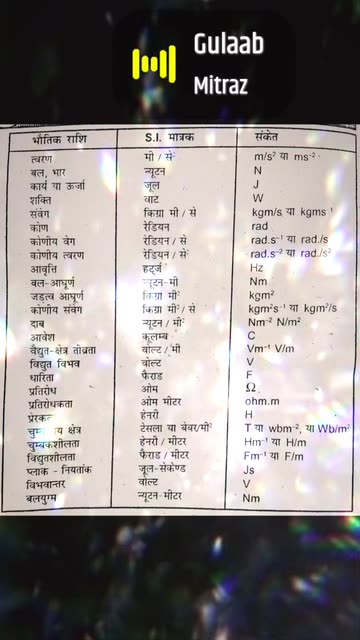 Gulaab
Mitraz
भौतिक राशि S.I. मात्रक संकेत
त्वरण मी / से² m/s² या ms⁻²
बल, भार न्यूटन N
कार्य या ऊर्जा जूल J
शक्ति वाट W
संवेग किग्रा मी / से kgm/s या kgms⁻¹
कोण रेडियन rad
कोणीय वेग रेडियन / से rad.s⁻¹ या rad./s
कोणीय त्वरण रेडियन / से² rad.s⁻² या rad./s²
आवृत्ति हर्ट्ज Hz
बल-आघूर्ण न्यूटन-मी Nm
जड़त्व आघूर्ण किग्रा मी² kgm²
कोणीय संवेग किग्रा मी² / से kgm²s⁻¹ या kgm²/s
दाब न्यूटन / मी² Nm⁻² N/m²
आवेश कूलम्ब C
वैद्युत-क्षेत्र तीव्रता वोल्ट / मी Vm⁻¹ V/m
विद्युत विभव वोल्ट V
धारिता फैराड F
प्रतिरोध ओम Ω
प्रतिरोधकता ओम मीटर ohm.m
प्रेरकत्व हेनरी H
चुम्बकीय क्षेत्र टेसला या वेबर/मी² T या wbm⁻², या Wb/m²
चुम्बकशीलता हेनरी / मीटर Hm⁻¹ या H/m
विद्युतशीलता फैराड / मीटर Fm⁻¹ या F/m
प्लाक - नियतांक जूल-सेकेण्ड Js
विभवान्तर वोल्ट V
बलयुग्म न्यूटन-मीटर Nm